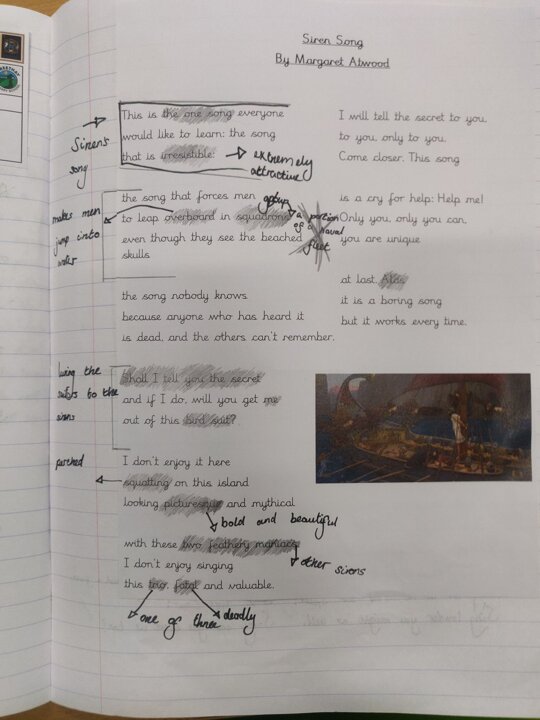 Siren Song
By Margaret Atwood
This is the one song everyone
would like to learn: the song
that is irresistible:
Sirens
song
extremely
attractive
the song that forces men
to leap overboard in squadrons
even though they see the beached
skulls
makes men
jump into
water
group
a portion
of a naval
fleet
the song nobody knows
because anyone who has heard it
is dead, and the others can't remember.
Shall I tell you the secret
and if I do, will you get me
out of this bird suit?
luring the
sailors to the
sirens
I don't enjoy it here
squatting on this island
looking picturesque and mythical
perched
bold and beautiful
with these two feathery maniacs,
I don't enjoy singing
this trio, fatal and valuable.
other sirens
one of three
deadly
I will tell the secret to you,
to you, only to you.
Come closer. This song
is a cry for help: Help me!
Only you, only you can,
you are unique
at last. Alas
it is a boring song
but it works every time.